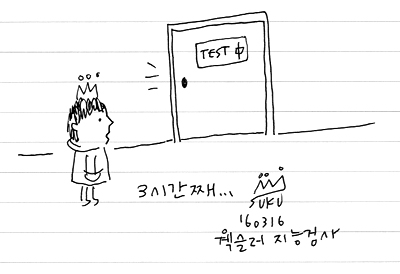 TEST 中
3시간째...
SUKU
160316
웩슬러 지능검사